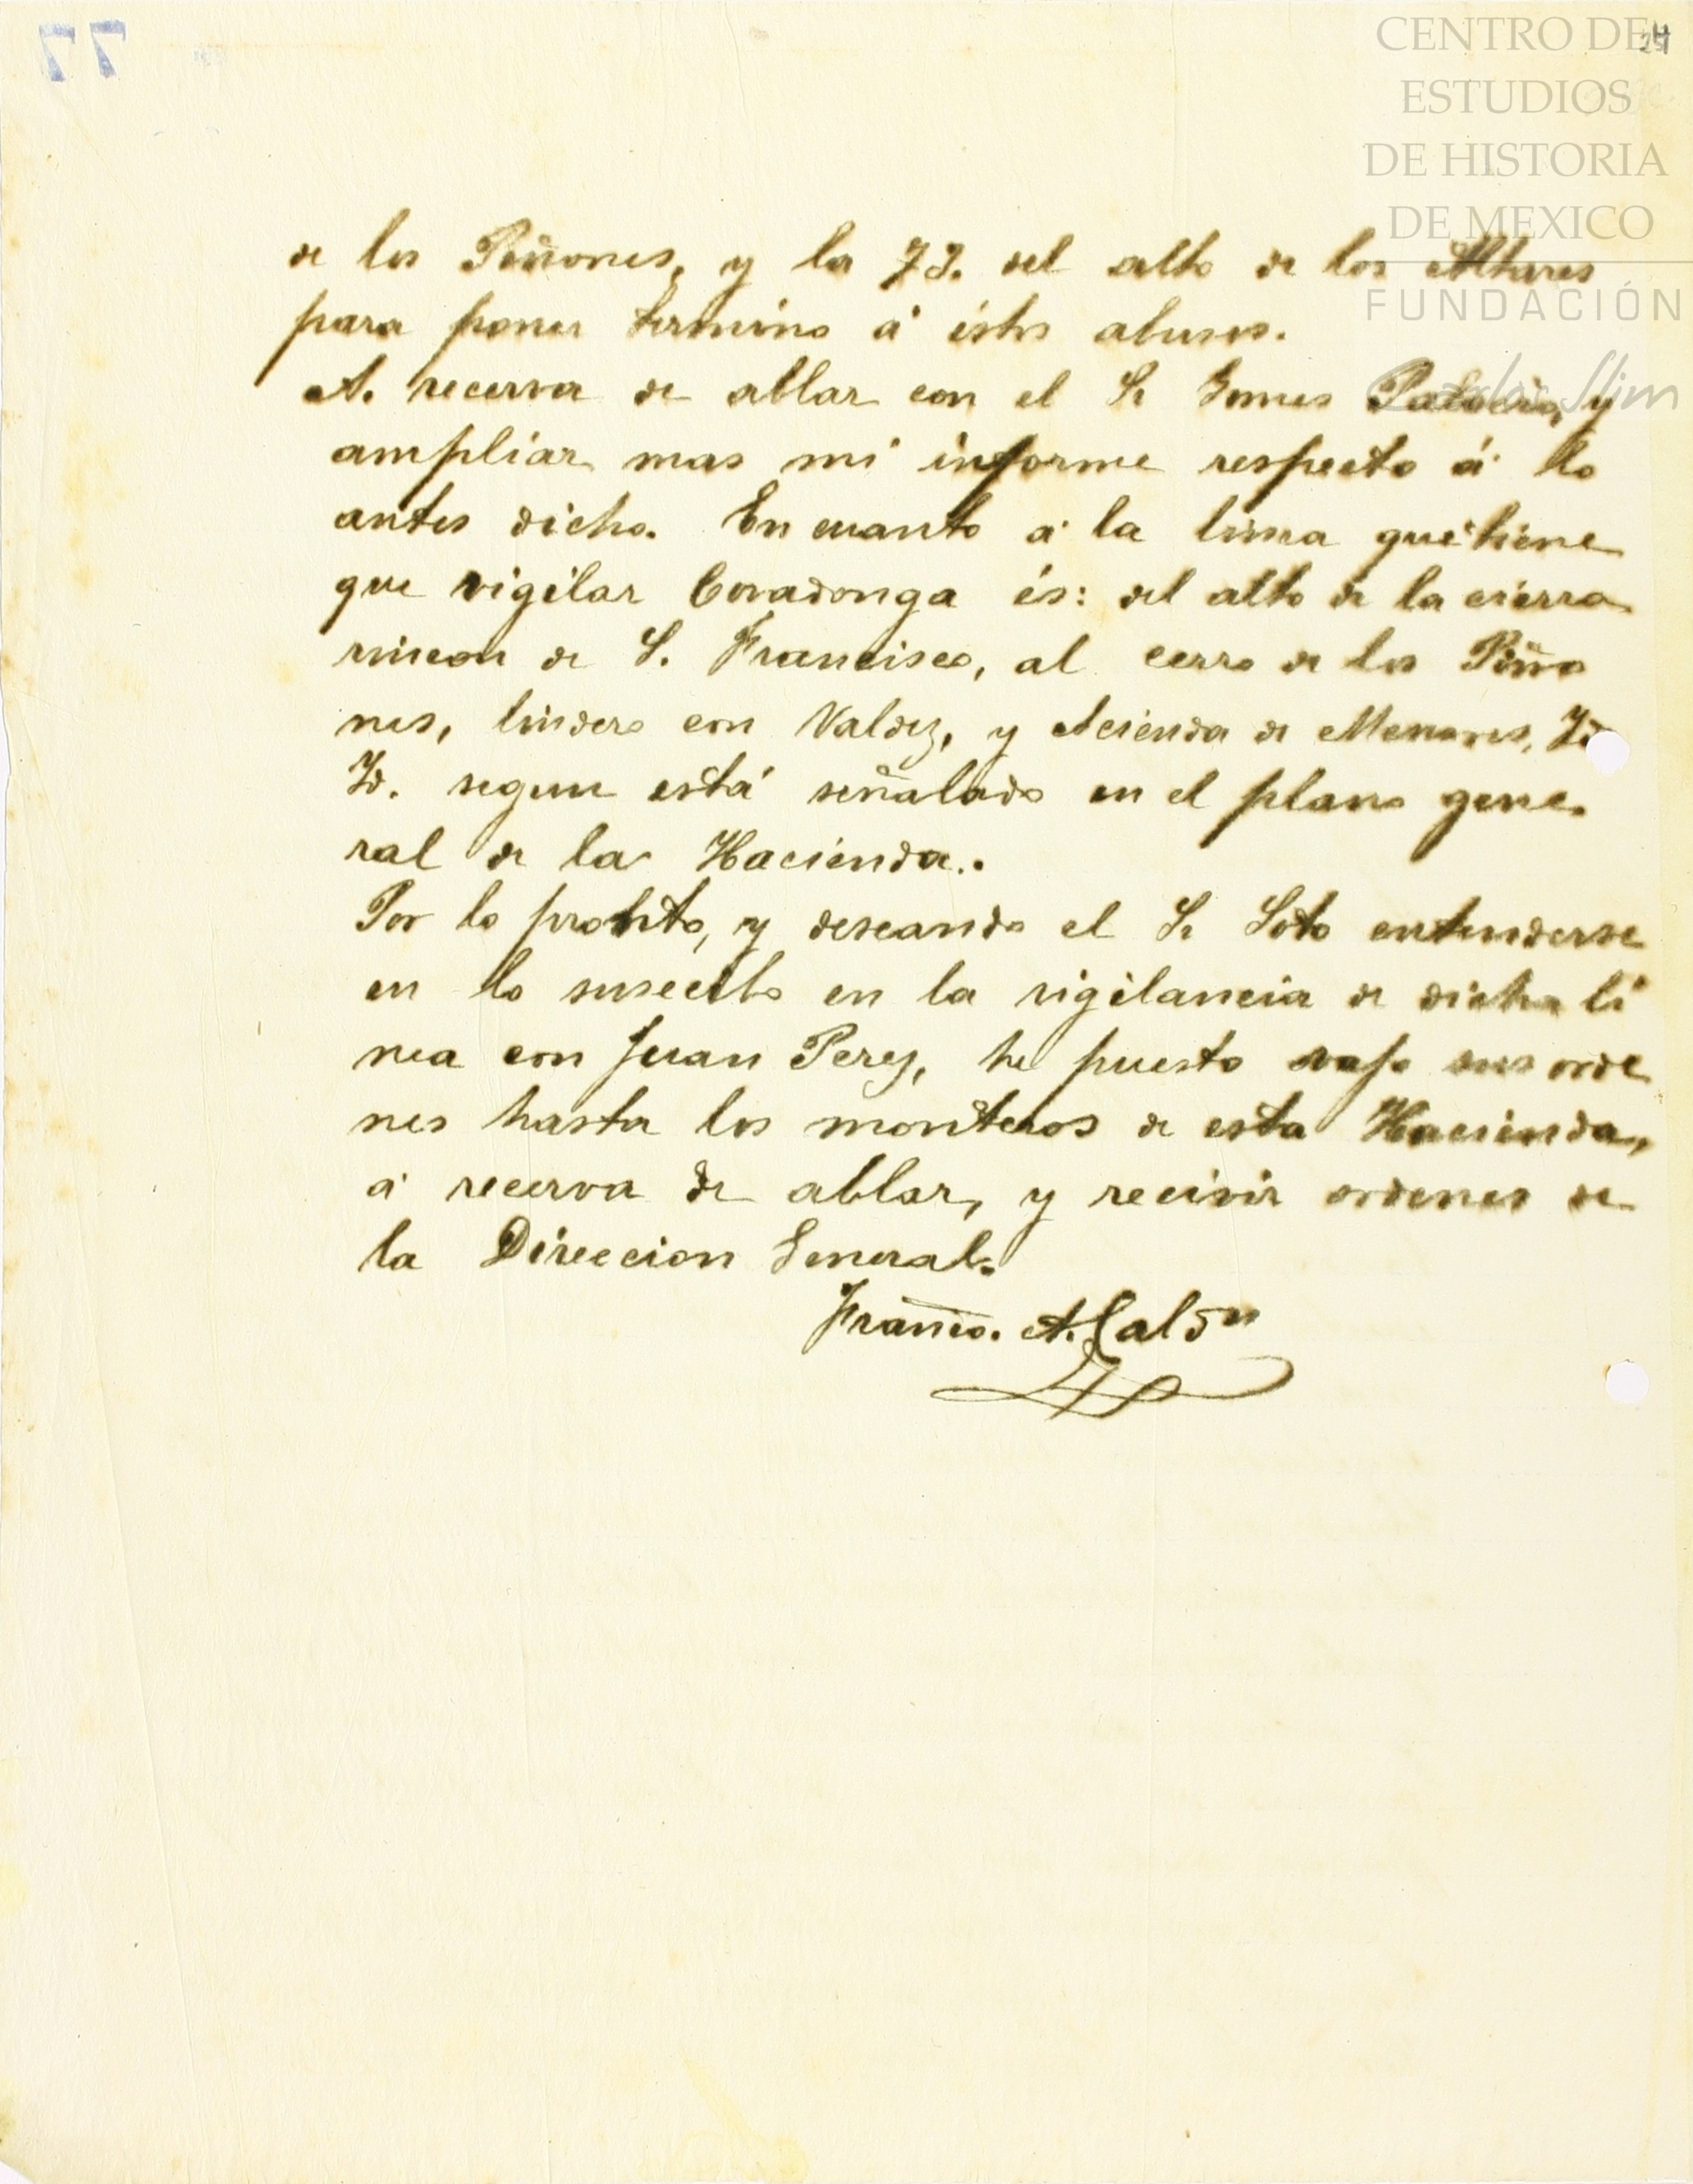 77
24
CENTRO DE
ESTUDIOS
DE HISTORIA
DE MEXICO
FUNDACIÓN
Carlos Slim
de los Piñones, y la 73. del alto de los Altares
para poner termino á éstos abusos.
A. recerva de ablar con el Sr Gomes Palacio, y
ampliar mas mi informe respecto á lo
antes dicho. En cuanto á la linea que tiene
que vigilar Covadonga és: del alto de la cierra
rincon de S. Francisco, al cerro de los Piño
nes, lindero con Valdez, y Acienda de Menores, Id
Id. segun está señalado en el plano gene.
ral de la Hacienda..
Por lo pronto, y deseando el Sr Soto entenderse
en lo susecibo en la vigilancia de dicha lí
nea con Juan Perez, he puesto vajo sus orde
nes hasta los monteros de esta Hacienda,
á recerva de ablar, y recivir ordenes de
la Direccion General.
Franco. A.